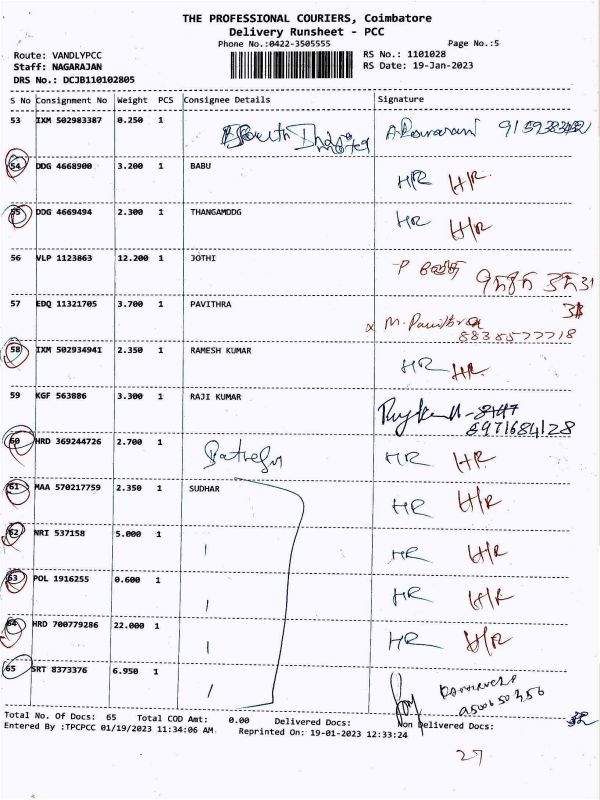 THE PROFESSIONAL COURIERS, Coimbatore
Delivery Runsheet - PCC
Phone No.:0422-3505555 Page No.:5
Route: VANDLYPCC RS No.: 1101028
Staff: NAGARAJAN RS Date: 19-Jan-2023
DRS No.: DCJB110102805
S No Consignment No Weight PCS Consignee Details Signature
53 IXM 502983387 0.250 1
54 DDG 4668900 3.200 1 BABU H/R H/R
55 DDG 4669494 2.300 1 THANGAMDDG H/R H/R
56 VLP 1123863 12.200 1 JOTHI
57 EDQ 11321705 3.700 1 PAVITHRA x M. Pavithra
8838577718
58 IXM 502934941 2.350 1 RAMESH KUMAR HR HR
59 KGF 563886 3.300 1 RAJI KUMAR
8971684128
60 HRD 369244726 2.700 1 HR HR
61 MAA 570217759 2.350 1 SUDHAR HR H/R
62 NRI 537158 5.000 1 HR H/R
63 POL 1916255 0.600 1 HR H/R
64 HRD 700779286 22.000 1 HR H/R
65 SRT 8373376 6.950 1
Total No. Of Docs: 65 Total COD Amt: 0.00 Delivered Docs: Non Delivered Docs:
Entered By :TPCPCC 01/19/2023 11:34:06 AM Reprinted On: 19-01-2023 12:33:24
27